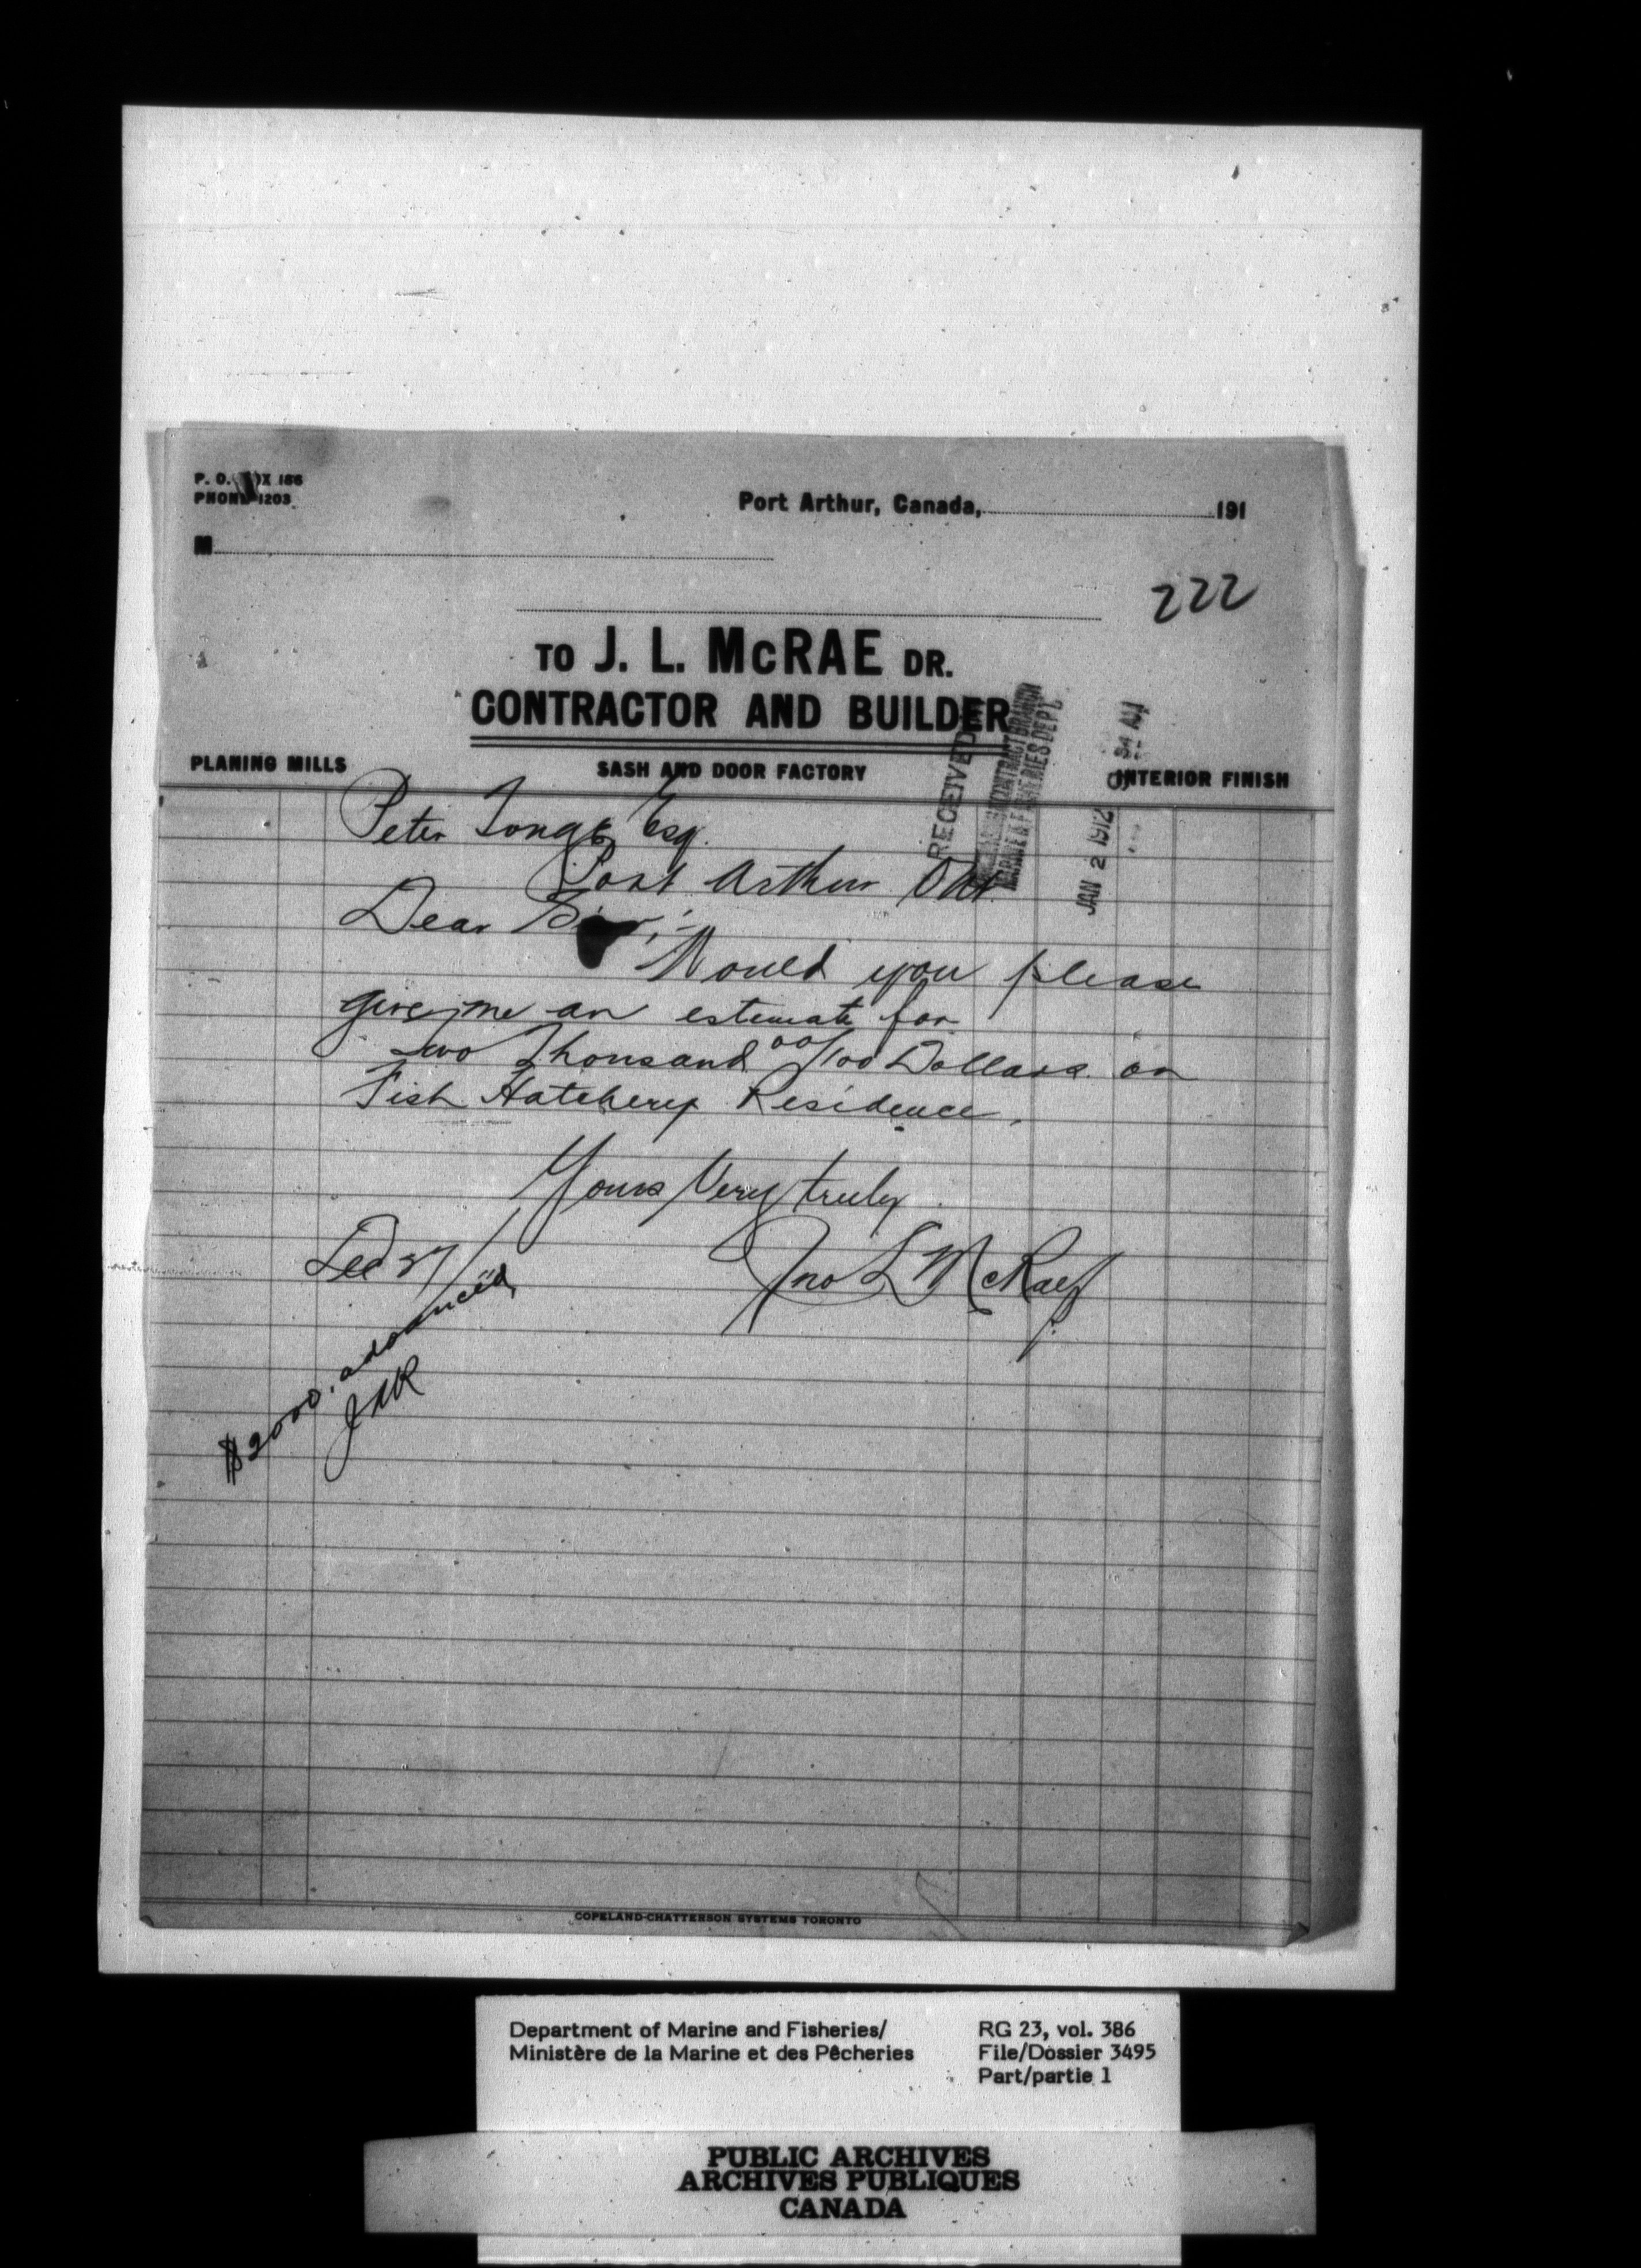 P. O. BOX 186
PHONE 1203
Port Arthur, Canada, 191
M
222
TO J. L. McRAE DR.
CONTRACTOR AND BUILDER
PLANING MILLS SASH AND DOOR FACTORY INTERIOR FINISH
RECEIVED
CONTRACT BRANCH
MARINE & FISHERIES DEPT.
JAN 2 1912
Peter Esq.
Port Arthur Ont.
Dear Sir;-
Would you please
give me an estimate for
Two Thousand 00/100 Dollars on
Fish Hatchery Residence.
Yours Very truly
Jno L McRae
$2000. advanced
COPELAND-CHATTERSON SYSTEMS TORONTO
Department of Marine and Fisheries/
Ministère de la Marine et des Pêcheries
RG 23, vol. 386
File/Dossier 3495
Part/partie 1
PUBLIC ARCHIVES
ARCHIVES PUBLIQUES
CANADA